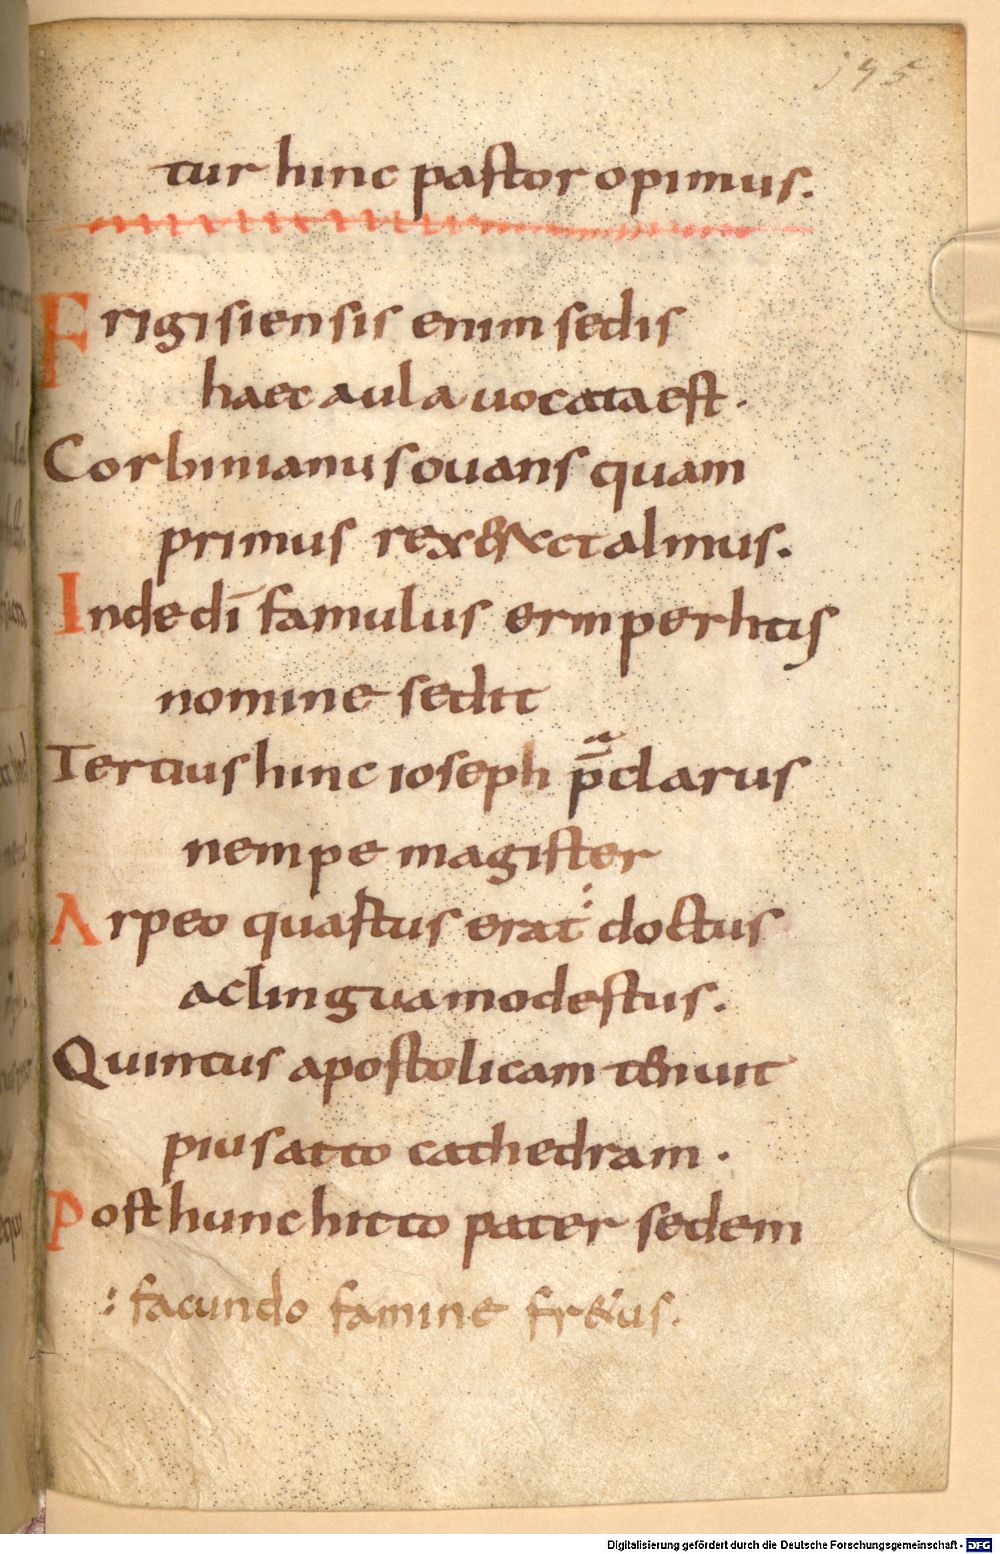 195.
tur hinc pastor opimus.
Frigisiensis enim sedis
haec aula uocata est.
Corbinianus ouans quam
primus rex& & almus.
Inde dī famulus ermperhtis
nomine sedit
Tertius hinc ioseph p̄ᵃclarus
nempe magister
Arpeo quartus erat doctus
ac lingua modestus.
Quintus apostolicam tenuit
pius atto cathedram.
Post hunc hitto pater sedem
: facundo famine fr&us.
Digitalisierung gefördert durch die Deutsche Forschungsgemeinschaft - DFG